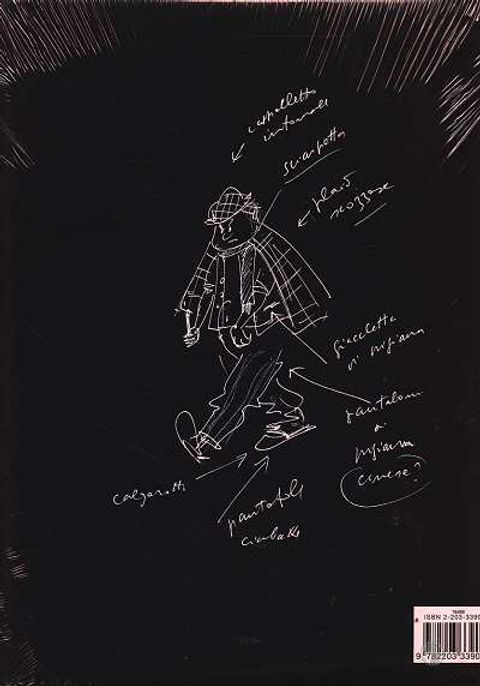 cappelletto
intonare
sciarpetta
plaid
scozzese
giacchetta
di pigiama
pantaloni
di
pigiama
cenere?
pantofole
ciabatte
ISBN 2-203-3390
9 782203 3390